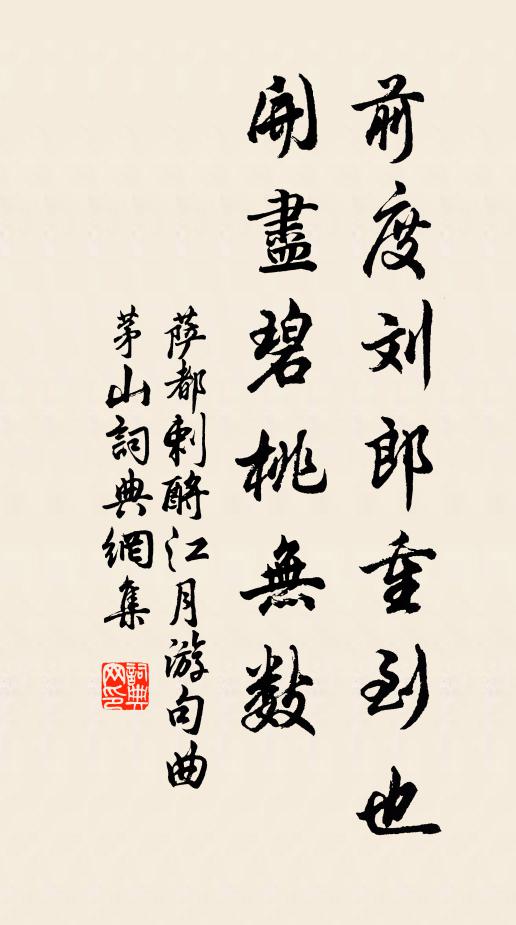 前度刘郎重到也
開盡碧桃無数
萨都剌酹江月游句曲
茅山詞典網集
詞典网印